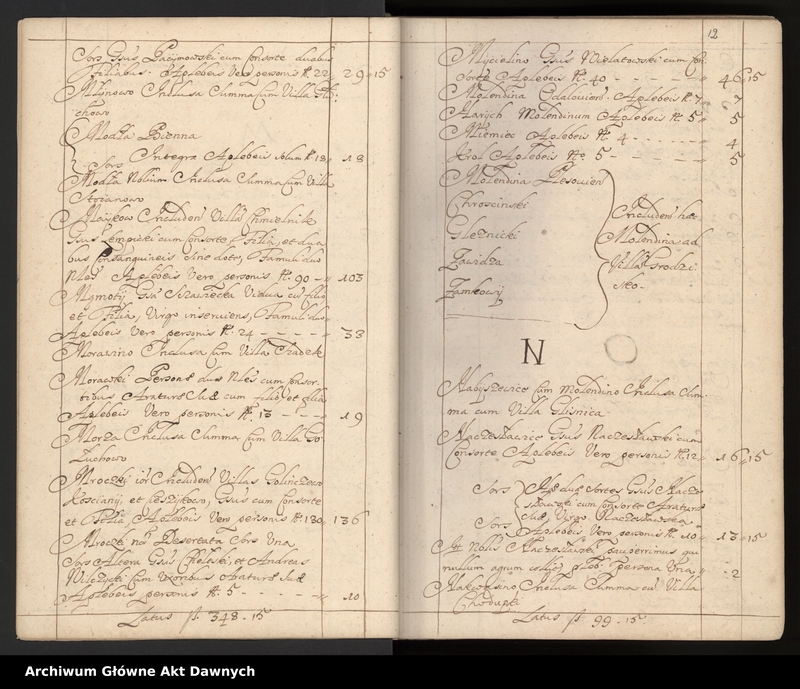 Sors Gsus Paczynowski cum Consorte duabus
filiabus. A plebeis Vero personis Nr. 22 29 15
Młynowo Inclusa Summa cum Villa
chowo
Modła Pienna
Sors Integra A plebeis solum Nr 18 18
Modła Nobilium Inclusa Summa cum Villa
Maykow Includens Villa Chmielnik
Gsus Lempicki cum Consorte, Filia, et dua
bus Consanguineis Sine dote, Famuli duo
Nles A plebeis Vero personis Nr. 90 103
Mymotij Gsa Szaszecka Vidua cum filio
et Filia, Virgo inserviens, Famuli duo
A plebeis Vero personis Nr. 24 33
Morawino Inclusa cum Villa Czadek
Morawski Personae duae Nles cum Consor-
tibus Araturae Suae cum filio et filia
A plebeis Vero personis Nr. 13 19
Morza Inclusa Summa cum Villa Go
łuchowo
Mroczki ior Includens Villas Golinczewo
Koscianij, et Leszykowo, Gsus cum Consorte
et Filia A plebeis Vero personis Nr. 130 136
Mroczki Deserta Sors Una
Sors Altera Gsus Chelski, et Andreas
Wilczycki cum Uxoribus Araturae Suae
A plebeis personis Nr. 5 10
Latus fl. 348 - 15
12
Mycielino Gsus Wielatowski cum Con
sorte A plebeis Nr. 40 46 15
Molendina A plebeis Nr. 7 7
Starych Molendinum A plebeis Nr. 5 5
Niemiec A plebeis Nr. 4 4
Krol A plebeis Nr. 5 5
Molendina Plesovien
Chroscinski
Gleznicki
Zawidza
Zamkowy
Includens haec
Molendina ad
Villa Grodzi
sko
N
Nabyszewice cum Molendino Inclusa Sum-
ma cum Villa Glisnica
Naczesławice Gsus Naczesławski cum
Consorte A plebeis Vero personis Nr. 12 16 15
Sors A duae Sortes Gsus Nacze
sławski cum Consorte Araturae
Suae, Virgo Naczesławska
Sors A plebeis Vero personis Nr. 10 13 15
Nobilis Naczesławski pauperrimus qui
nullum agrum colit, pleb. persona Una 2
Nakwasino Inclusa Summa cum Villa
Chodupki
Latus fl. 99 - 15
Archiwum Główne Akt Dawnych